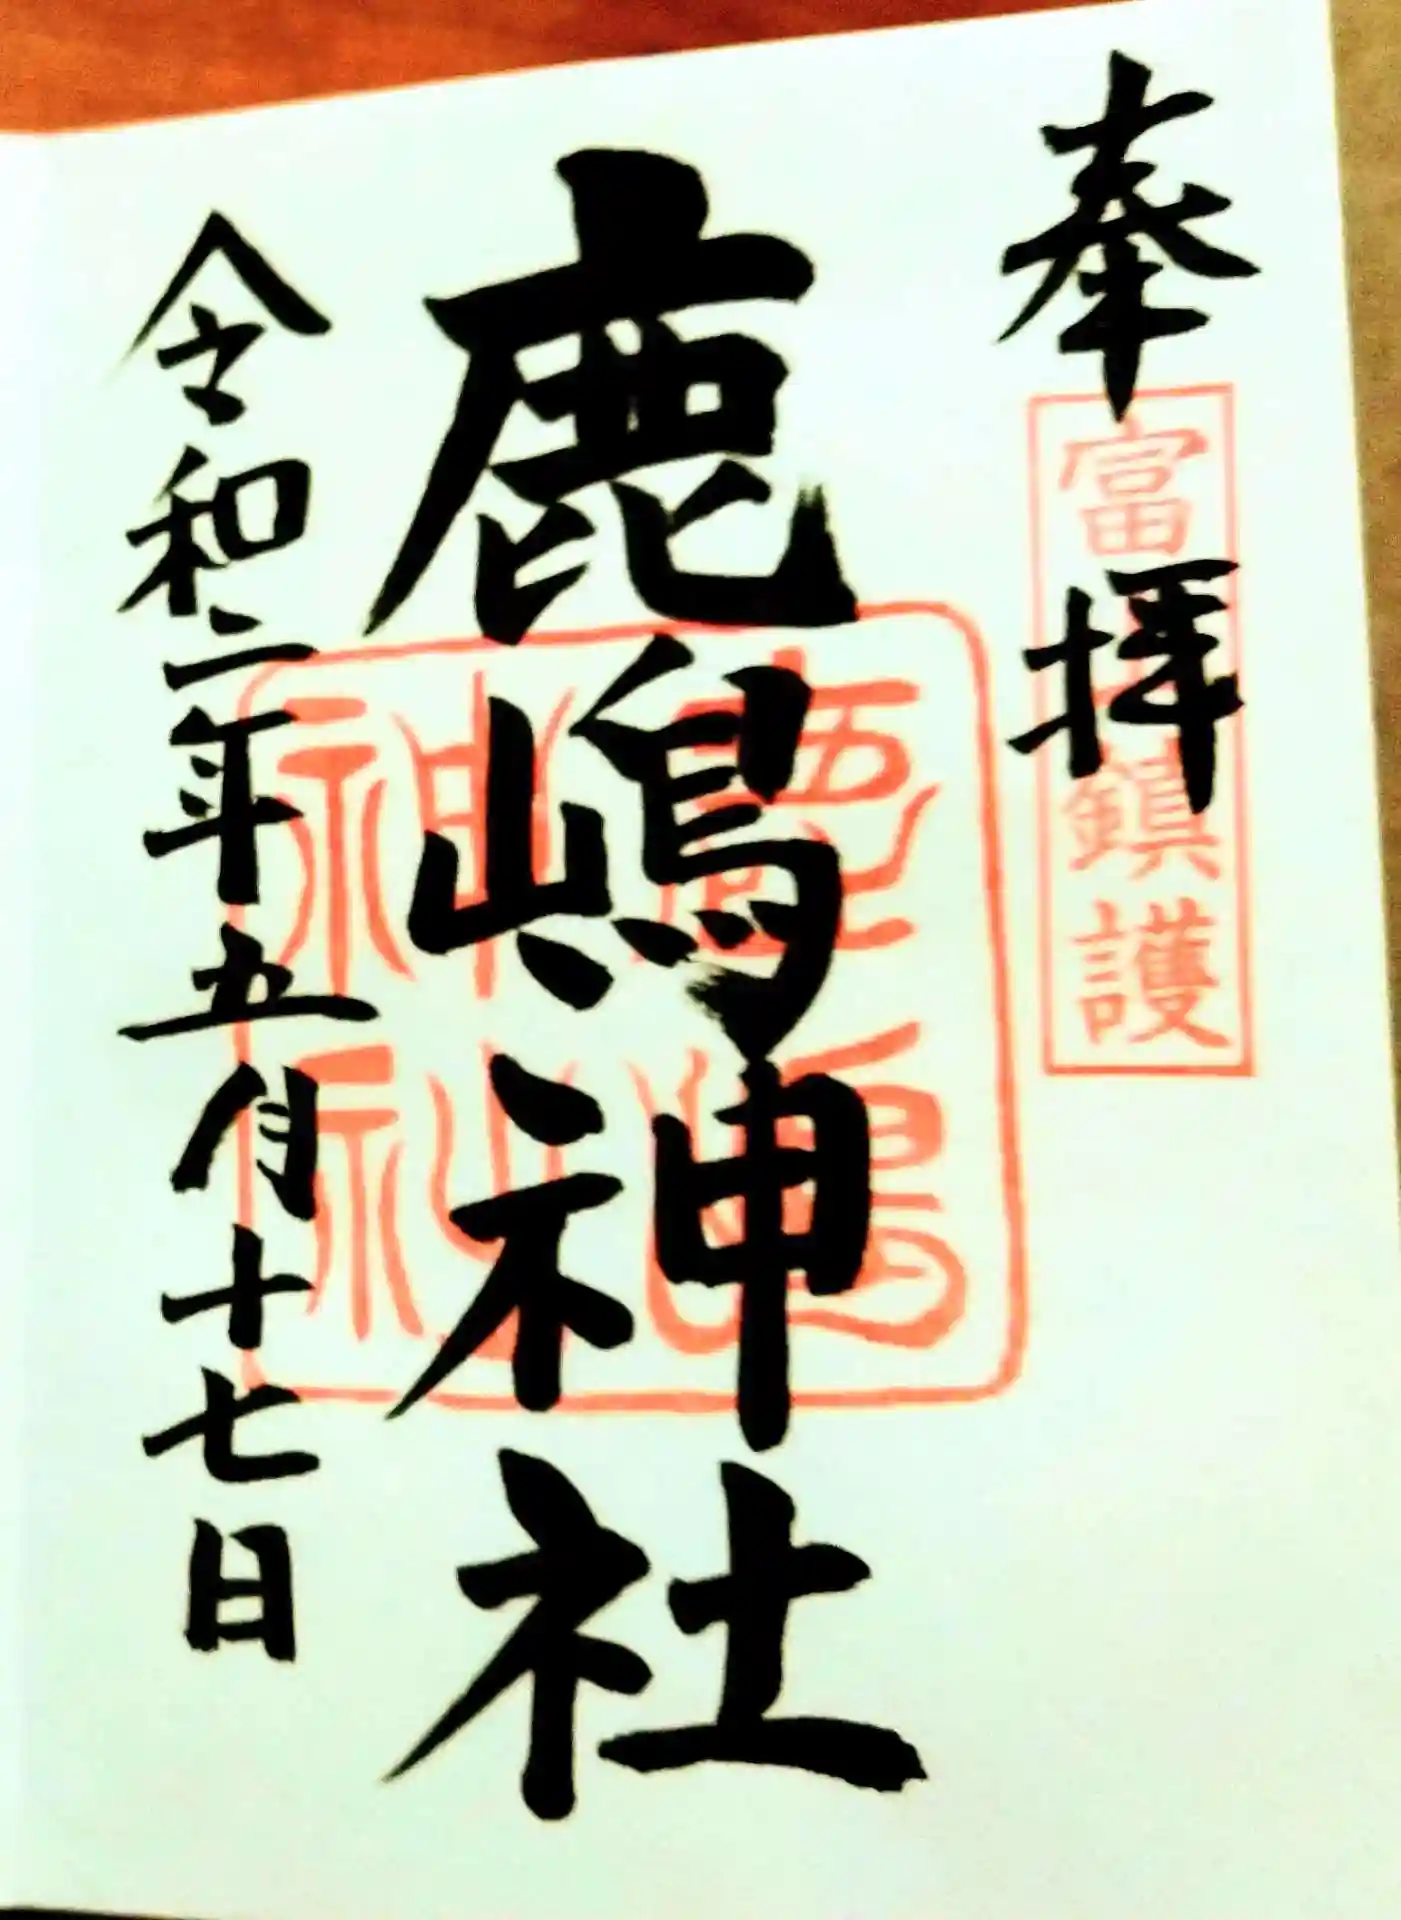 奉拝
富士鎮護
鹿嶋神社
鹿嶋
神社
令和二年五月十七日